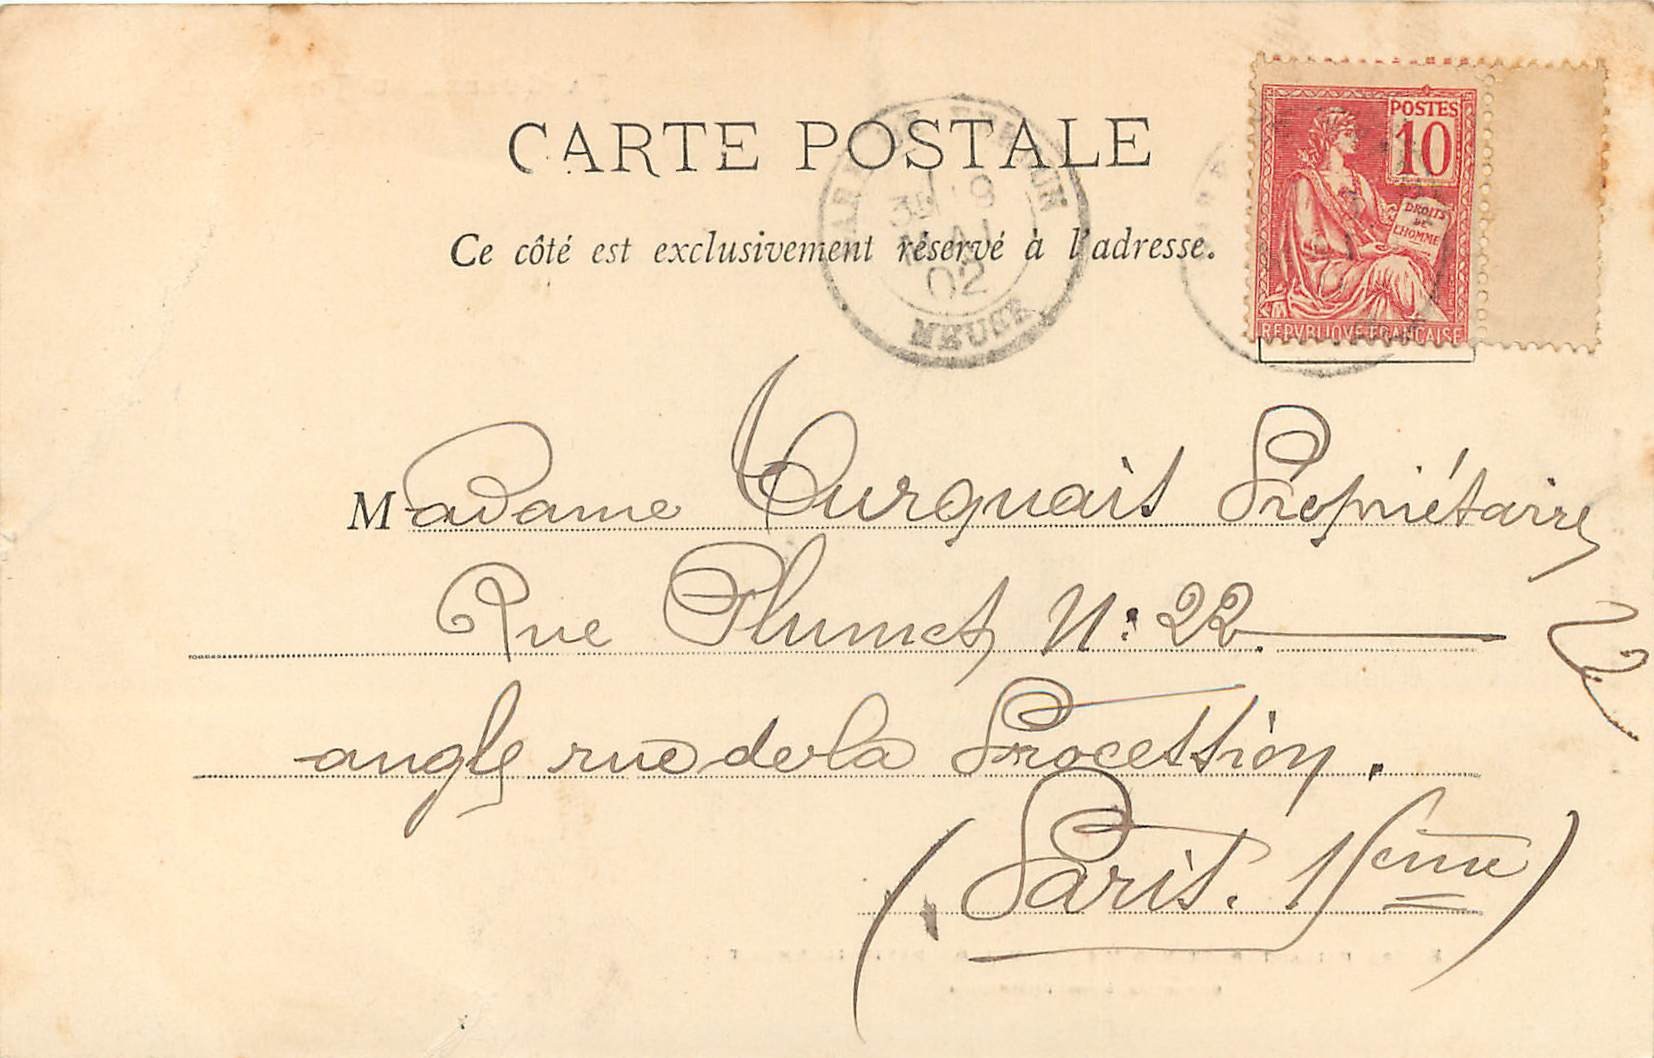 CARTE POSTALE
Ce côté est exclusivement réservé à l'adresse.
GARE DE VERDUN
MAI
02
MEUSE
POSTES
10
DROITS
DE
L'HOMME
REPVBLIQVE FRANÇAISE
Madame Turquais Propriétaire
Rue Plumet N: 22.
angle rue de la Procession.
(Paris. 15eme)